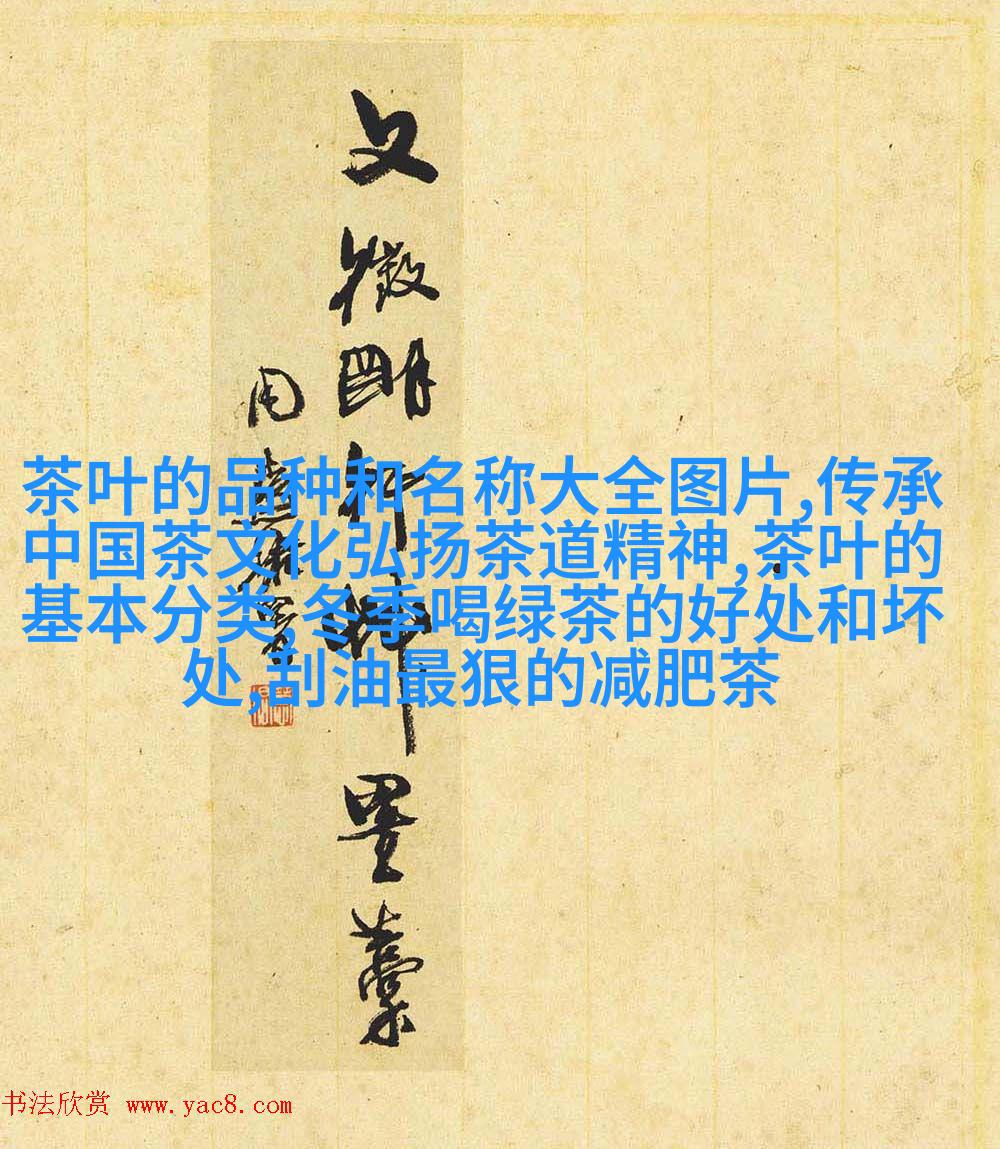 文徵明行墨藁
周慧珺署
茶叶的品种和名称大全图片,传承
中国茶文化弘扬茶道精神,茶叶的
基本分类,冬季喝绿茶的好处和坏
处,刮油最狠的减肥茶
书法欣赏 www.yac8.com